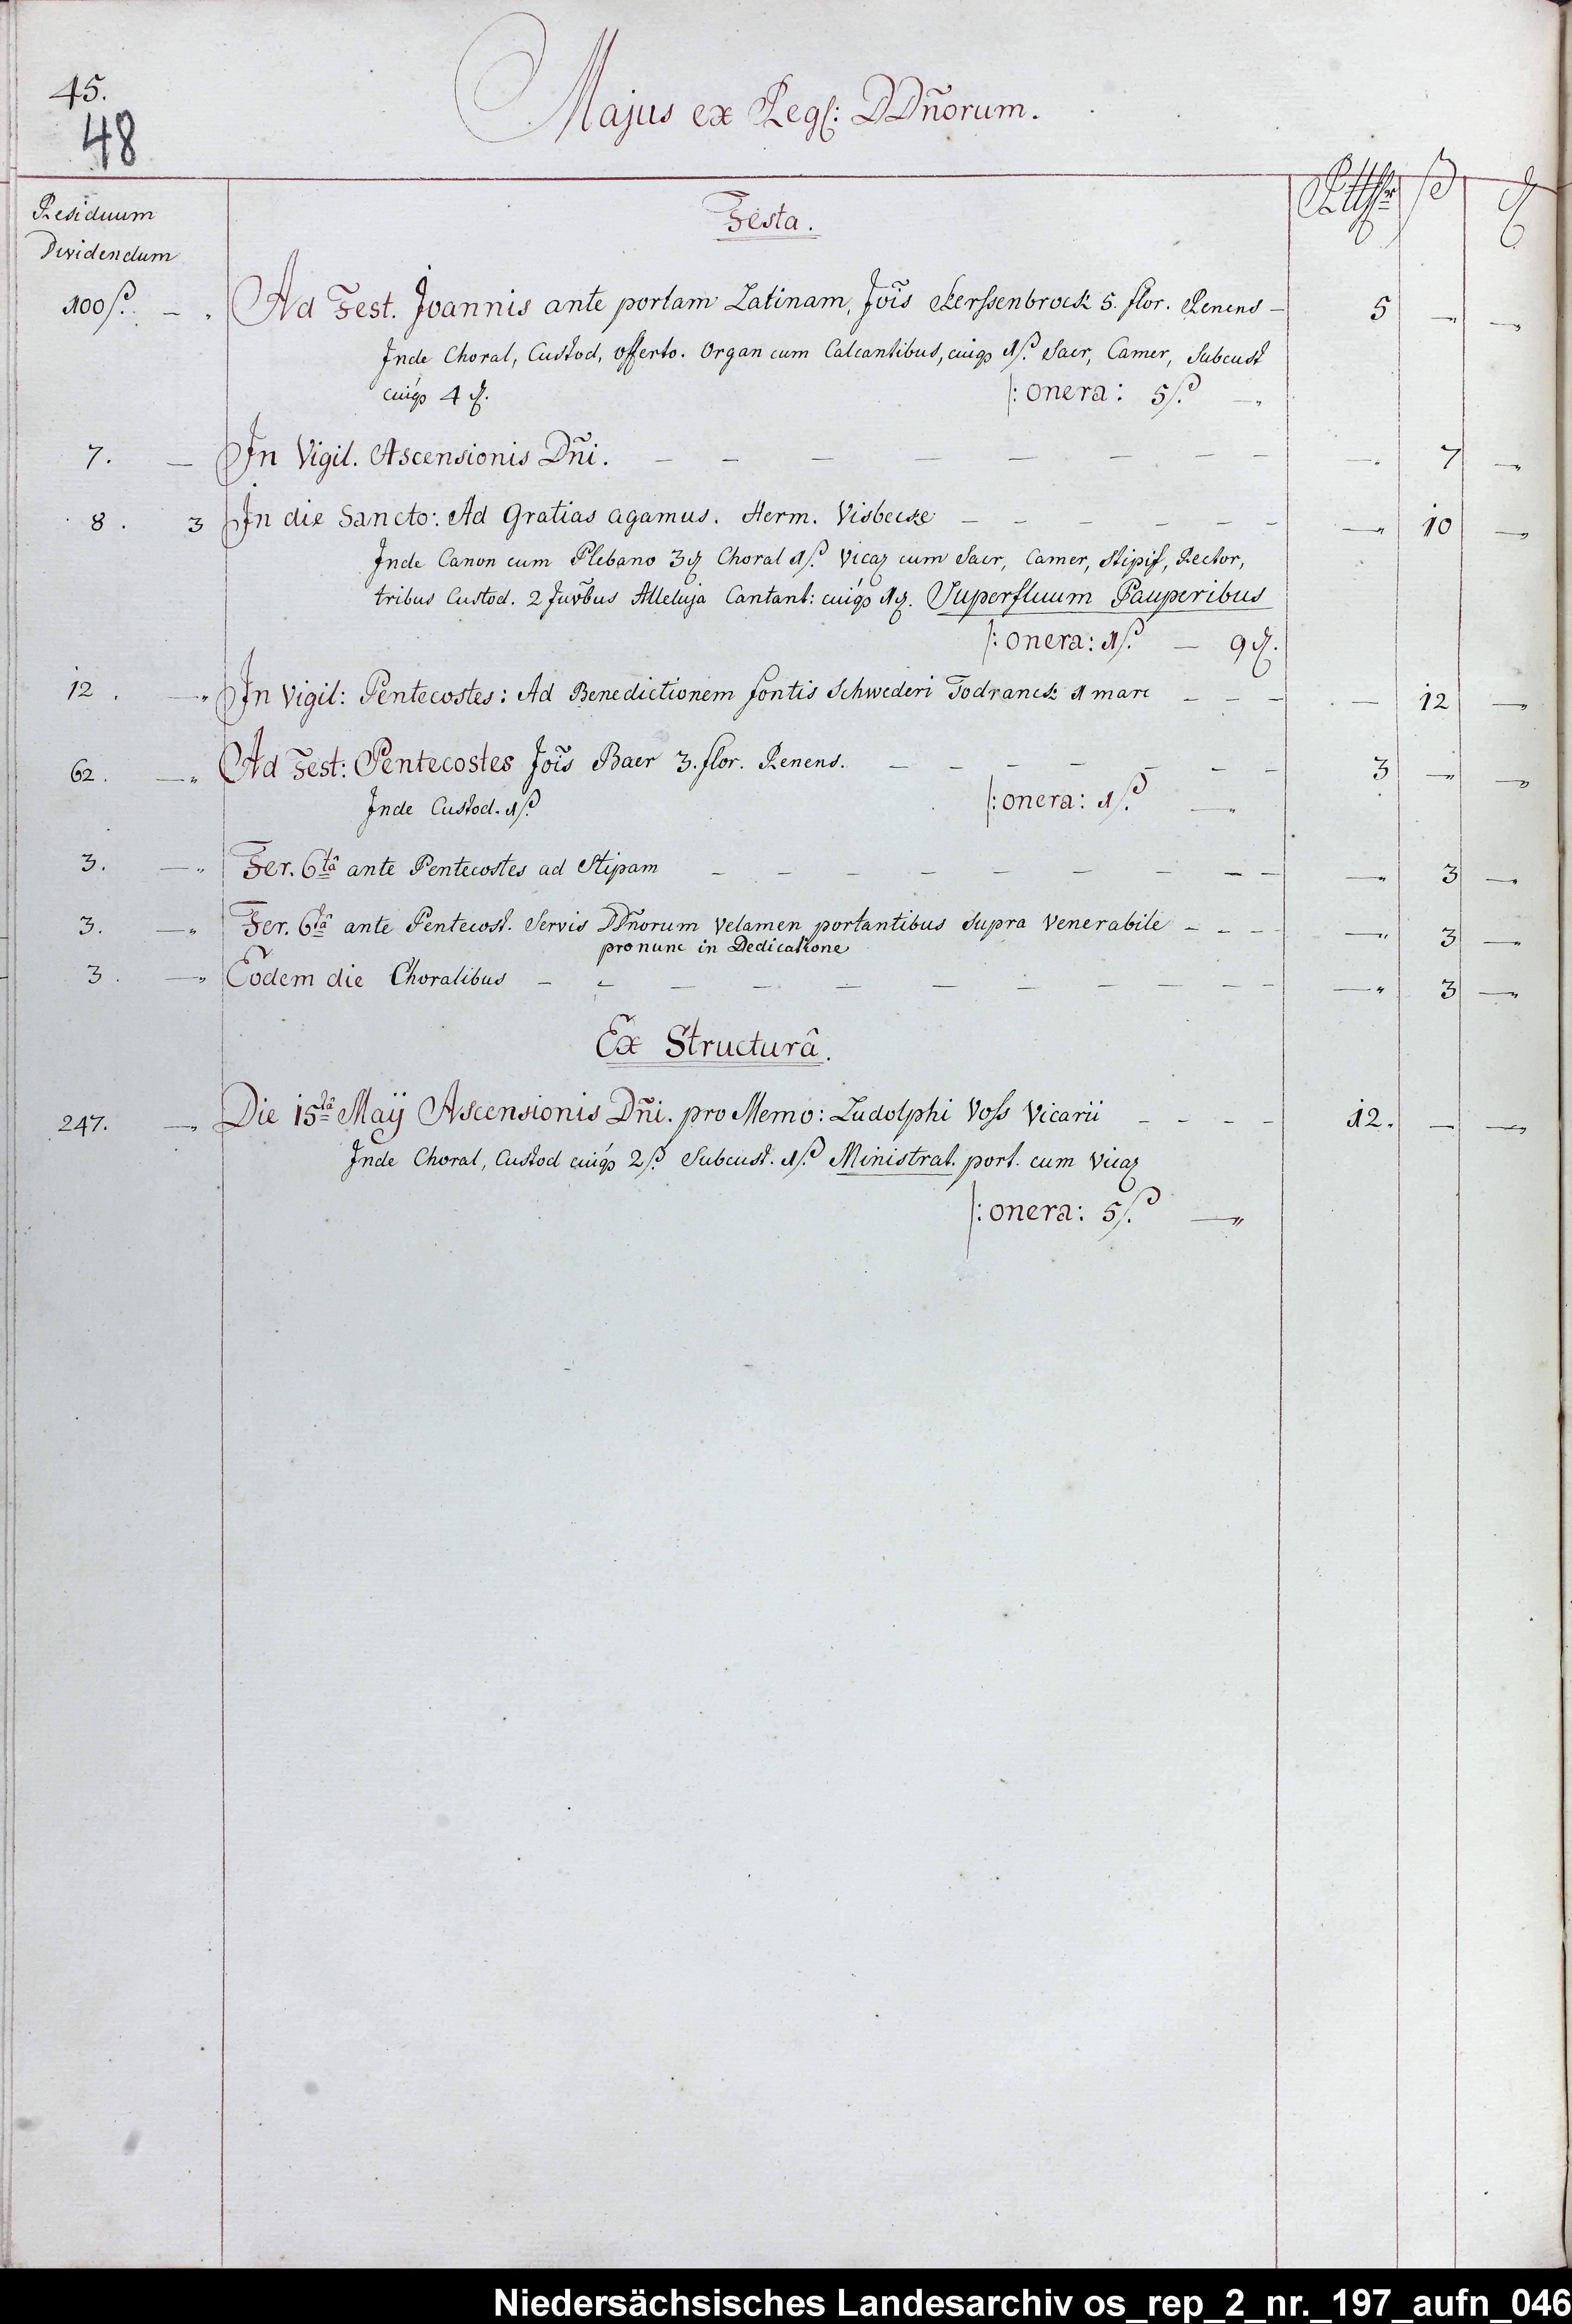 45.
48
Majus ex Regl: DDñorum.
Residuum
Dividendum
Festa.
Rtthlr ß ₰
100 ß. — „ Ad Fest. Joannis ante portam Latinam, Jois Kerssenbrock 5. flor. Renens — 5 — —
Inde Choral, Custod, offerto. Organ cum Calcantibus, cuiqɜ 1 ß. Sacr, Camer, Subcust
cuiqɜ 4 ₰. |: onera: 5 ß. —
7. — In Vigil. Ascensionis Dñi. — — — — — — — — — 7 —
8. 3 In die Sancto: Ad Gratias agamus. Herm. Visbecke — — — — — — — 10 —
Inde Canon cum Plebano 3 ₰ Choral 1 ß. Vicaɜ cum Sacr, Camer, Stipif, Rector,
tribus Custod. 2 Juvbus Alleluja Cantant: cuiqɜ 1 ₰. Superfluum Pauperibus
|: onera: 1 ß. — 9 ₰.
12. — „ In Vigil: Pentecostes: Ad Benedictionem fontis Schwederi Todranck 1 marc — — — — 12 —
62. — „ Ad Fest: Pentecostes Jois Baer 3. flor. Renens. — — — — — — — 3 — —
Inde Custod. 1 ß |: onera: 1 ß. —
3. — „ Fer. 6tâ ante Pentecostes ad Stipam — — — — — — — — — 3 —
3. — „ Fer. 6tâ ante Pentecost. Servis DDñorum Velamen portantibus supra Venerabile — — — — 3 —
pro nunc in Dedicatione
3. — „ Eodem die Choralibus — — — — — — — — — — — 3 —
Ex Structurâ.
247. — „ Die 15tâ Maÿ Ascensionis Dñi. pro Memo: Ludolphi Voss Vicarii — — — — 12. — —
Inde Choral, Custod cuiqɜ 2 ß. Subcust. 1 ß. Ministrat. port. cum Vicaɜ
|: onera: 5 ß. — „
Niedersächsisches Landesarchiv os_rep_2_nr._197_aufn_046